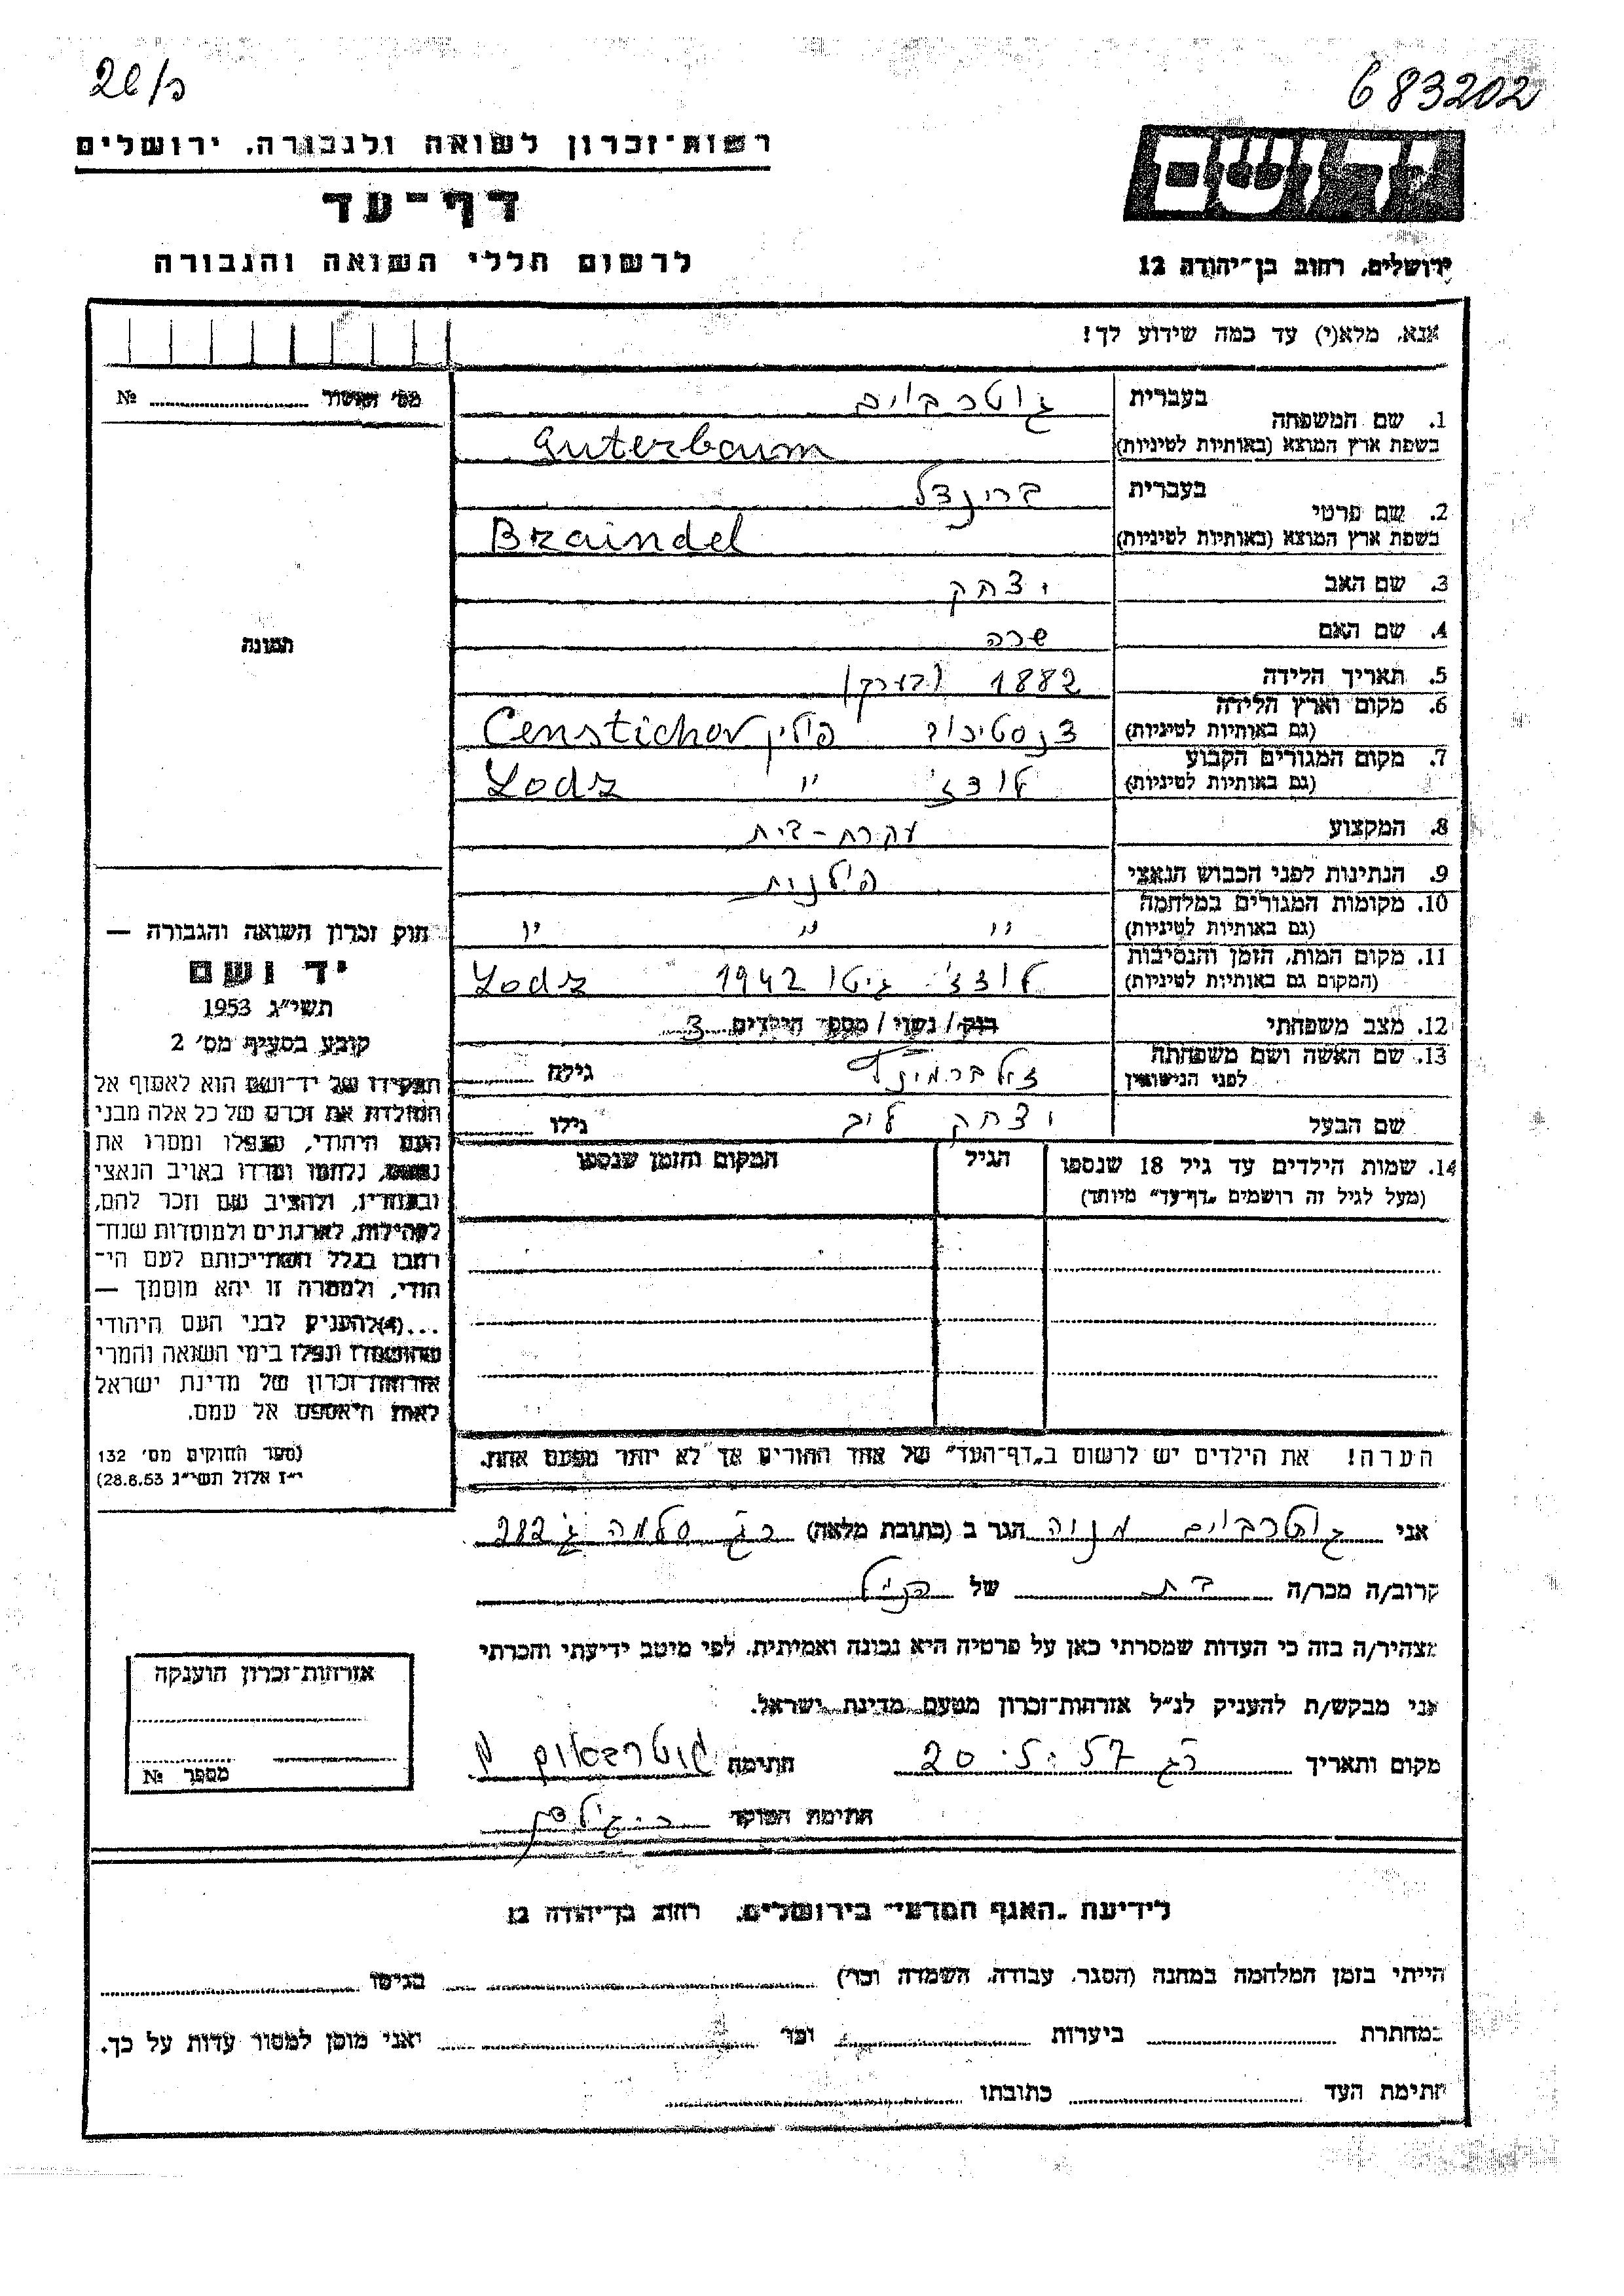 683202
רשות־זכרון לשואה ולגבורה, ירושלים
יד ושם
דף־עד
לרשום חללי השואה והגבורה
ירושלים, רחוב בן־יהודה 12
אנא, מלא(י) עד כמה שידוע לך!
מס׳ האשור № 
1. שם המשפחה
בעברית גוטרבוים
בשפת ארץ המוצא (באותיות לטיניות) Guterbaum
2. שם פרטי
בעברית בריינדל
בשפת ארץ המוצא (באותיות לטיניות) Braindel
3. שם האב יצחק
4. שם האם שרה
5. תאריך הלידה 1882 (בערך)
6. מקום וארץ הלידה
(גם באותיות לטיניות) צנסטיכוב פולין Censtichov
7. מקום המגורים הקבוע
(גם באותיות לטיניות) לודז׳ " Lodz
8. המקצוע עקרת-בית
9. הנתינות לפני הכבוש הנאצי פולנית
10. מקומות המגורים במלחמה
(גם באותיות לטיניות) " " "
11. מקום המות, הזמן והנסיבות
(המקום גם באותיות לטיניות) לודז׳ גיטו 1942 Lodz
12. מצב משפחתי רוק/נשוי/מספר הילדים 3
13. שם האשה ושם משפחתה
לפני הנישואין זילברמינץ גילה
שם הבעל יצחק ליב גילו
14. שמות הילדים עד גיל 18 שנספו
(מעל לגיל זה רושמים „דף־עד" מיוחד)
הגיל
המקום והזמן שנספו
תמונה
חוק זכרון השואה והגבורה —
יד ושם
תשי״ג 1953
קובע בסעיף מס׳ 2
תפקידו של יד־ושם הוא לאסוף אל
המולדת את זכרם של כל אלה מבני
העם היהודי, שנפלו ומסרו את
נפשם, נלחמו ומרדו באויב הנאצי
ובעוזריו, ולהציב שם וזכר להם,
לקהילות, לארגונים ולמוסדות שנח־
רבו בגלל השתייכותם לעם הי־
הודי, ולמטרה זו יהא מוסמך —
...(4)להעניק לבני העם היהודי
שהושמדו ונפלו בימי השואה והמרי
אזרחות־זכרון של מדינת ישראל
לאות היאספם אל עמם.
(ספר החוקים מס׳ 132
י״ז אלול תשי״ג 28.8.53)
הערה! את הילדים יש לרשום ב„דף־העד" של אחד ההורים אך לא יותר מפעם אחת.
אני גוטרבוים מנוה הגר ב (כתובת מלאה) רג סלמה ג׳ 282
קרוב/ה מכר/ה בת של הנ״ל
מצהיר/ה בזה כי העדות שמסרתי כאן על פרטיה היא נכונה ואמיתית, לפי מיטב ידיעתי והכרתי
אני מבקש/ת להעניק לנ״ל אזרחות־זכרון מטעם מדינת ישראל.
מקום ותאריך רג 20.5.57 חתימה גוטרבאום מ
חתימת הפוקד
אזרחות־זכרון הוענקה
מספר №
לידיעת „האגף המדעי" בירושלים, רחוב בן־יהודה 12
הייתי בזמן המלחמה במחנה (הסגר, עבודה, השמדה וכו׳) בגיטו
במחתרת ביערות וכו׳ ואני מוכן למסור עדות על כך.
חתימת העד כתובתו